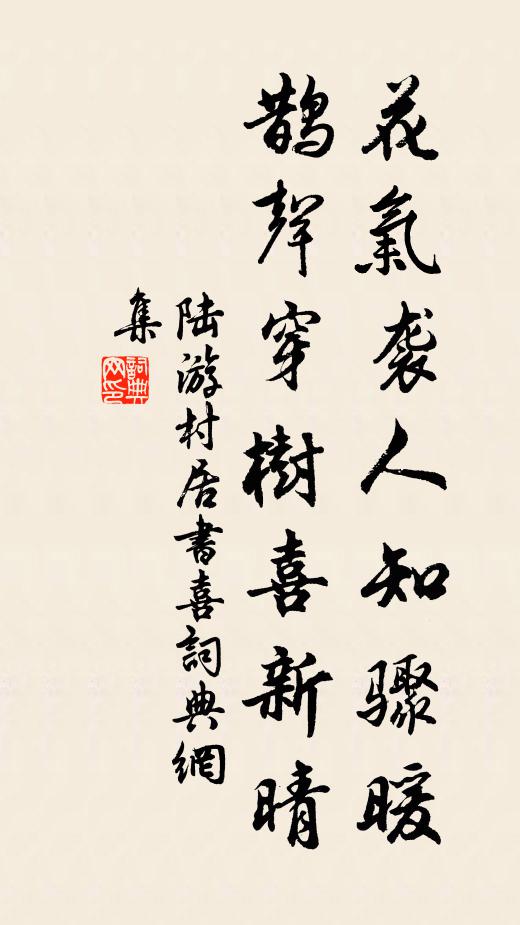 花氣襲人知驟暖
鵲聲穿樹喜新晴
陆游村居書喜詞典網
集
詞典
网印